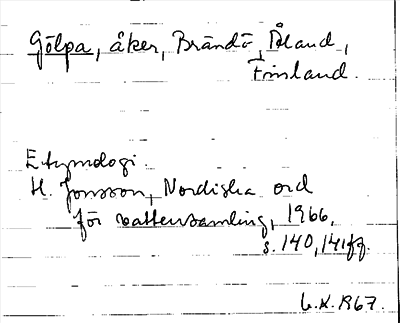 Gölpa, åker, Brändö, Åland,
Finland.
Etymologi.
H. Jonsson, Nordiska ord
för vattensamling, 1966,
s. 140, 141 ff.
6.X.1967.